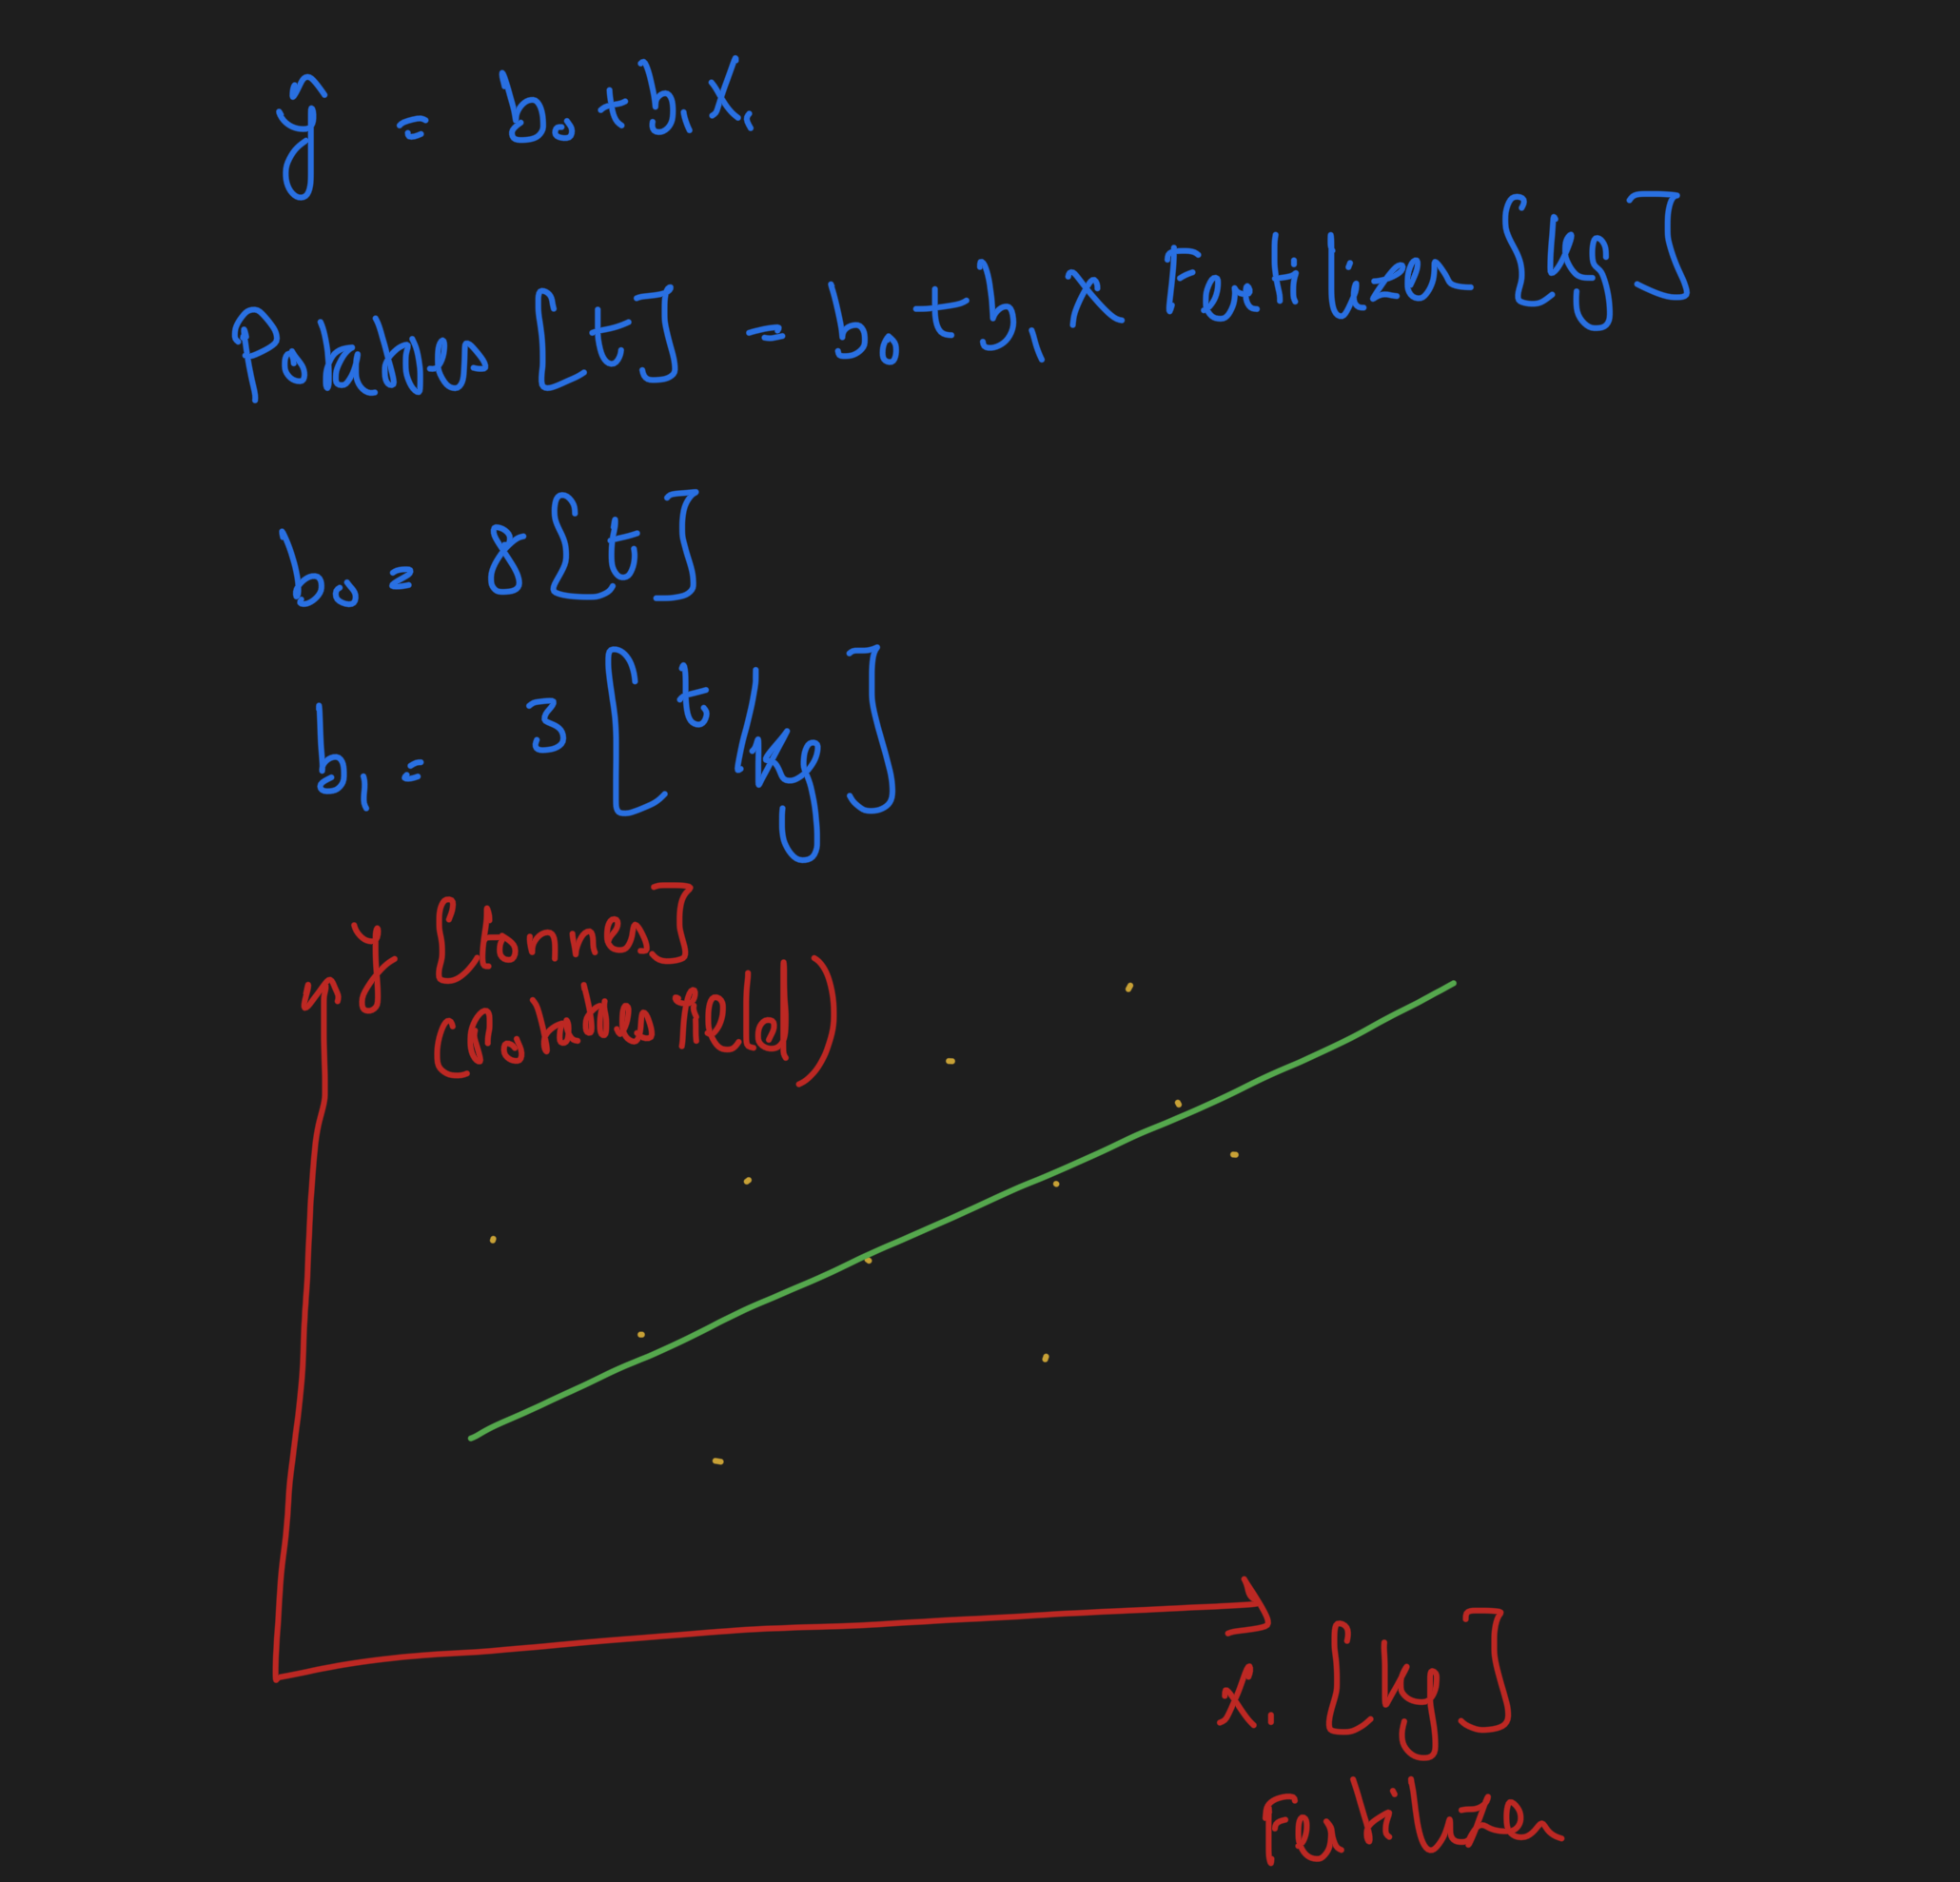 ŷ = b₀ + b₁X₁
Potatoes [t] = b₀ + b₁ x Fertilizer [kg]
b₀ = 8[t]
b₁ = 3 [t/kg]
y [tonnes]
(Potatoes yield)
x₁ [kg]
Fertilizer